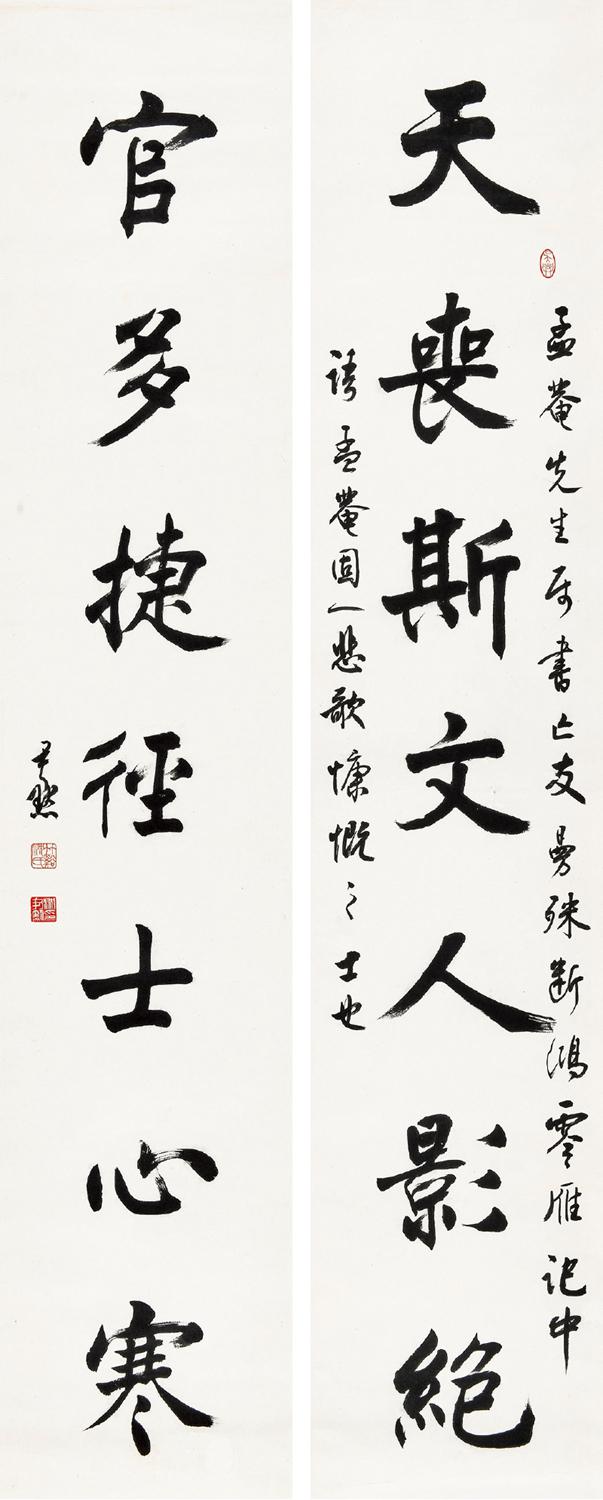 孟菴先生屬書亡友曼殊斷鴻零雁記中
天喪斯文人影絕
語孟菴固一悲歌慷慨之士也
官多捷徑士心寒
尹默